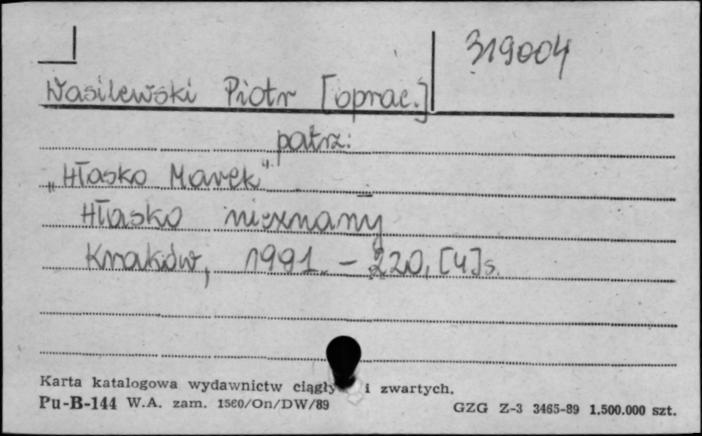 319004
Wasilewski Piotr [oprac.]
patrz:
„Hłasko Marek"
Hłasko nieznany
Kraków, 1991. - 220, [4] s.
Karta katalogowa wydawnictw ciągły i zwartych.
Pu-B-144 W.A. zam. 1560/On/DW/89
GZG Z-3 3465-89 1.500.000 szt.